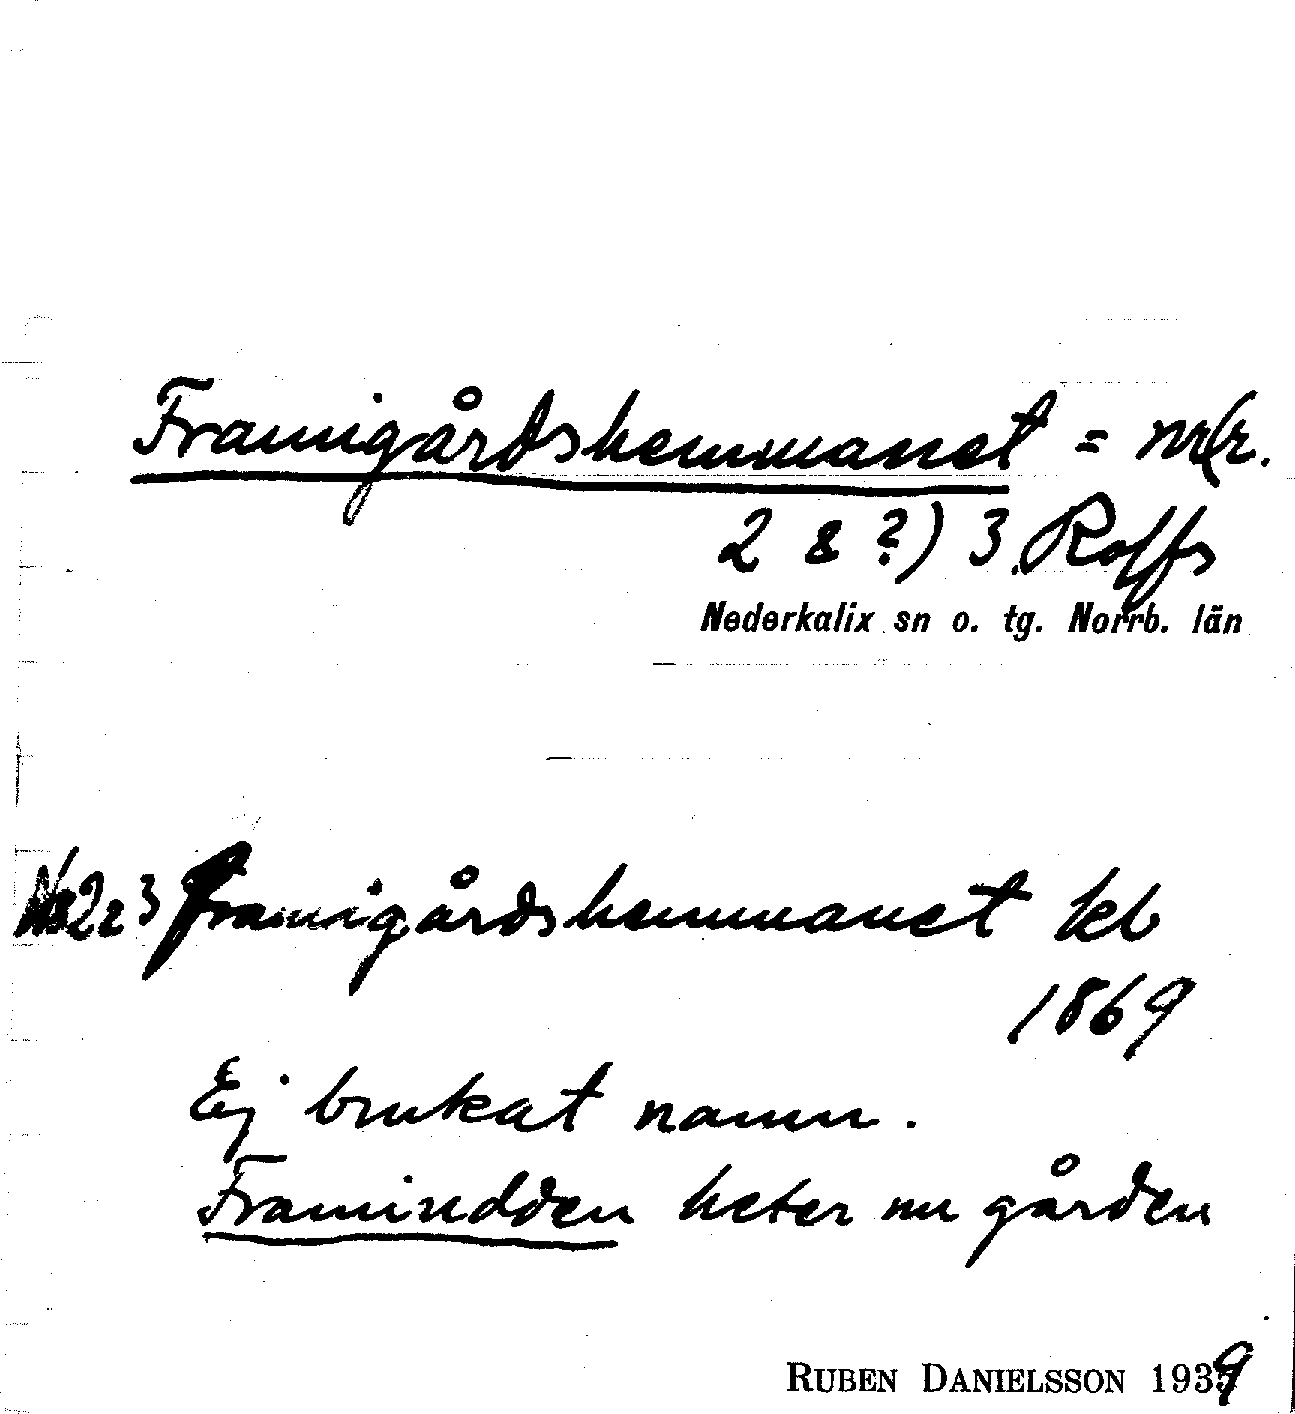 Framigårdshemmanet = nr(r.
2 & ?) 3 Rolfs
Nederkalix sn o. tg. Norrb. län
No 2 & 3 Framigårdshemmanet kb
1869
Ej brukat namn.
Framiudden heter nu gården
RUBEN DANIELSSON 1939